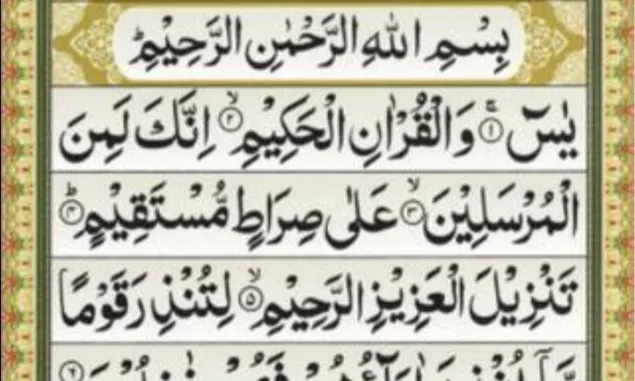 بِسْمِ اللهِ الرَّحْمٰنِ الرَّحِيْمِ
يٰسٓ ۚ﴿۱﴾ وَالْقُرْاٰنِ الْحَكِيْمِ ۙ﴿۲﴾ اِنَّكَ لَمِنَ
الْمُرْسَلِيْنَ ۙ﴿۳﴾ عَلٰى صِرَاطٍ مُّسْتَقِيْمٍ ؕ﴿۴﴾
تَنْزِيْلَ الْعَزِيْزِ الرَّحِيْمِ ۙ﴿۵﴾ لِتُنْذِرَ قَوْمًا